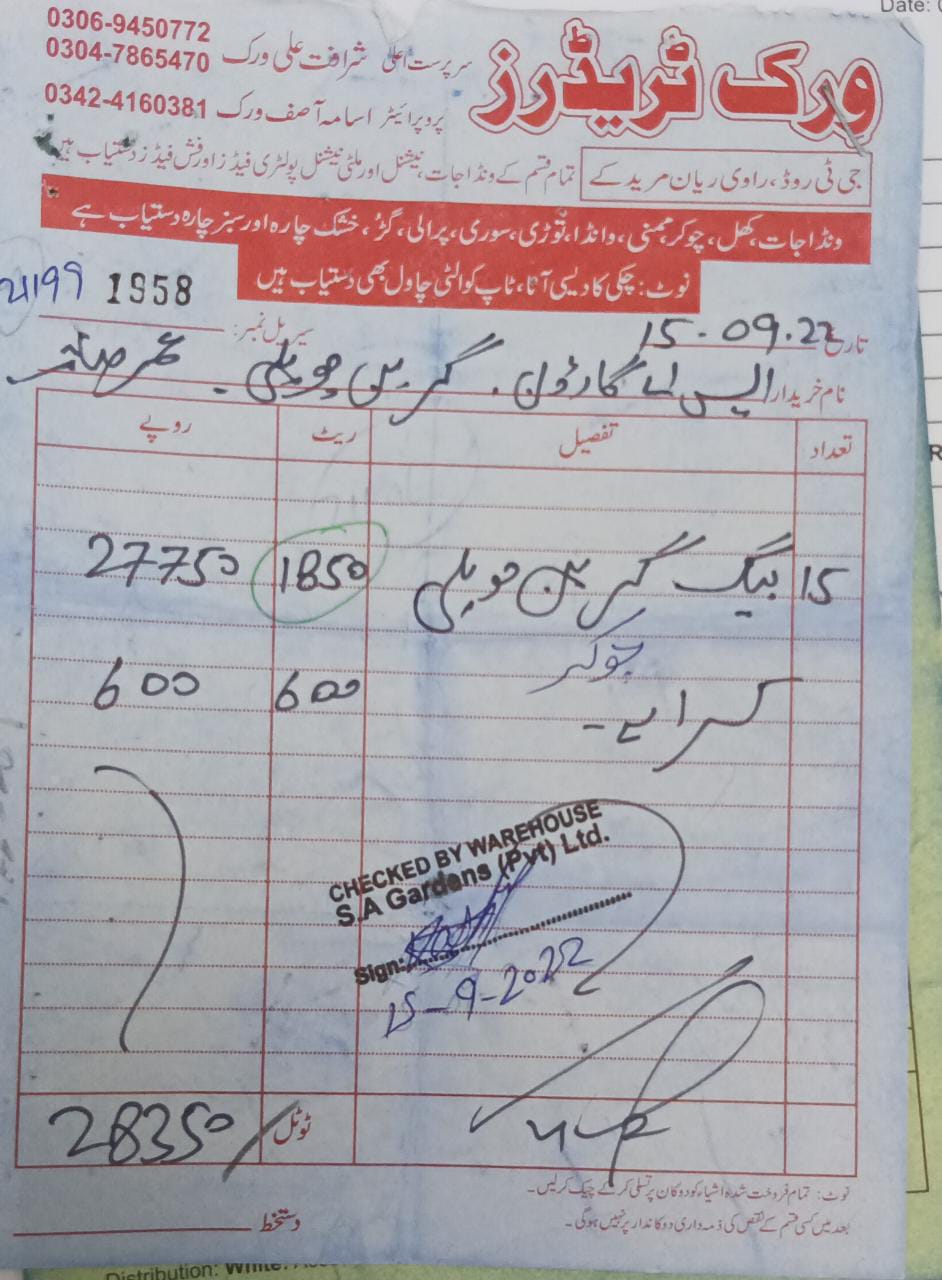 Date:
ورک ٹریڈرز
0306-9450772
سرپرست اعلیٰ شرافت علی ورک 0304-7865470
پروپرائیٹر اسامہ آصف ورک 0342-4160381
جی ٹی روڈ، راوی ریان مریدکے
تمام قسم کے ونڈا جات، نیشنل اور ملٹی نیشنل پولٹری فیڈز اور فش فیڈز دستیاب ہیں
ونڈا جات، کھل، چوکر، ممنی، وانڈا، توڑی، سوری، پرالی، گڑ، خشک چارہ اور سبز چارہ دستیاب ہے
نوٹ: چکی کا دیسی آٹا، ٹاپ کوالٹی چاول بھی دستیاب ہیں
1958
سیریل نمبر:
تاریخ 15-09.22
نام خریدار ایس اے گارڈن۔ گرین حویلی۔
تعداد تفصیل ریٹ روپے
15 بیگ گرین حویلی 1850 27750
چوکر
کرایہ 600 600
CHECKED BY WAREHOUSE
S.A Gardens (Pvt) Ltd.
Sign:
15-9-2022
ٹوٹل 28350/
نوٹ: تمام فروخت شدہ اشیاء کو دوکان پر تسلی کر کے چیک کر لیں۔
بعد میں کسی قسم کے نقص کی ذمہ داری دوکاندار پر نہیں ہوگی۔
دستخط
Distribution: White: